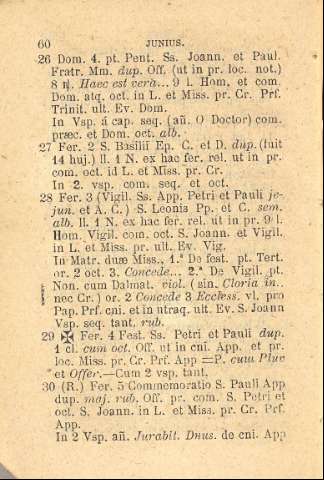 60 JUNIUS.
26 Dom. 4. pt. Pent. Ss. Joann. et Paul.
Fratr. Mm. dup. Off. (ut in pr. loc. not.)
8 ꝶ. Haec est verà... 9 l. Hom. et com.
Dom. atq. oct. in L. et Miss. pr. Cr. Prf.
Trinit. ult. Ev. Dom.
In Vsp. á cap. seq. (añ. O Doctor) com.
præc. et Dom. oct. alb.
27 Fer. 2 S. Basilii Ep. C. et D. dup. (fuit
14 huj.) ll. 1 N. ex hac fer. rel. ut in pr.
com. oct. id L. et Miss. pr. Cr.
In 2. vsp. com. seq. et oct.
28 Fer. 3 (Vigil. Ss. App. Petri et Pauli je-
jun. et A. C.) S. Leonis Pp. et C. sem.
alb. ll. 1 N. ex hac fer. rel. ut in pr. 9 l.
Hom. Vigil. com. oct. S. Joann. et Vigil.
in L. et Miss. pr. ult. Ev. Vig.
In Matr. duæ Miss., 1.ª De fest. pt. Tert.
or. 2 oct. 3. Concede... 2.ª De Vigil. pt.
Non. cum Dalmat. viol. (sin. Cloria in.
nec Cr.) or. 2 Concede 3 Eccless. vl. pro
Pap. Prf. cni. et in utraq. ult. Ev. S. Joann
Vsp. seq. tant. rub.
29 ✠ Fer. 4 Fest. Ss. Petri et Pauli dup.
1 cl. cum oct. Off. ut in cni. App. et pr.
loc. Miss. pr. Cr. Prf. App =P. cuiu Pluv
et Offer.—Cum 2 vsp. tant.
30 (R.) Fer. 5 Commemoratio S. Pauli App
dup. maj. rub. Off. pr. com. S. Petri et
oct. S. Joann. in L. et Miss. pr. Cr. Prf.
App.
In 2 Vsp. añ. Jurabit. Dnus. de cni. App